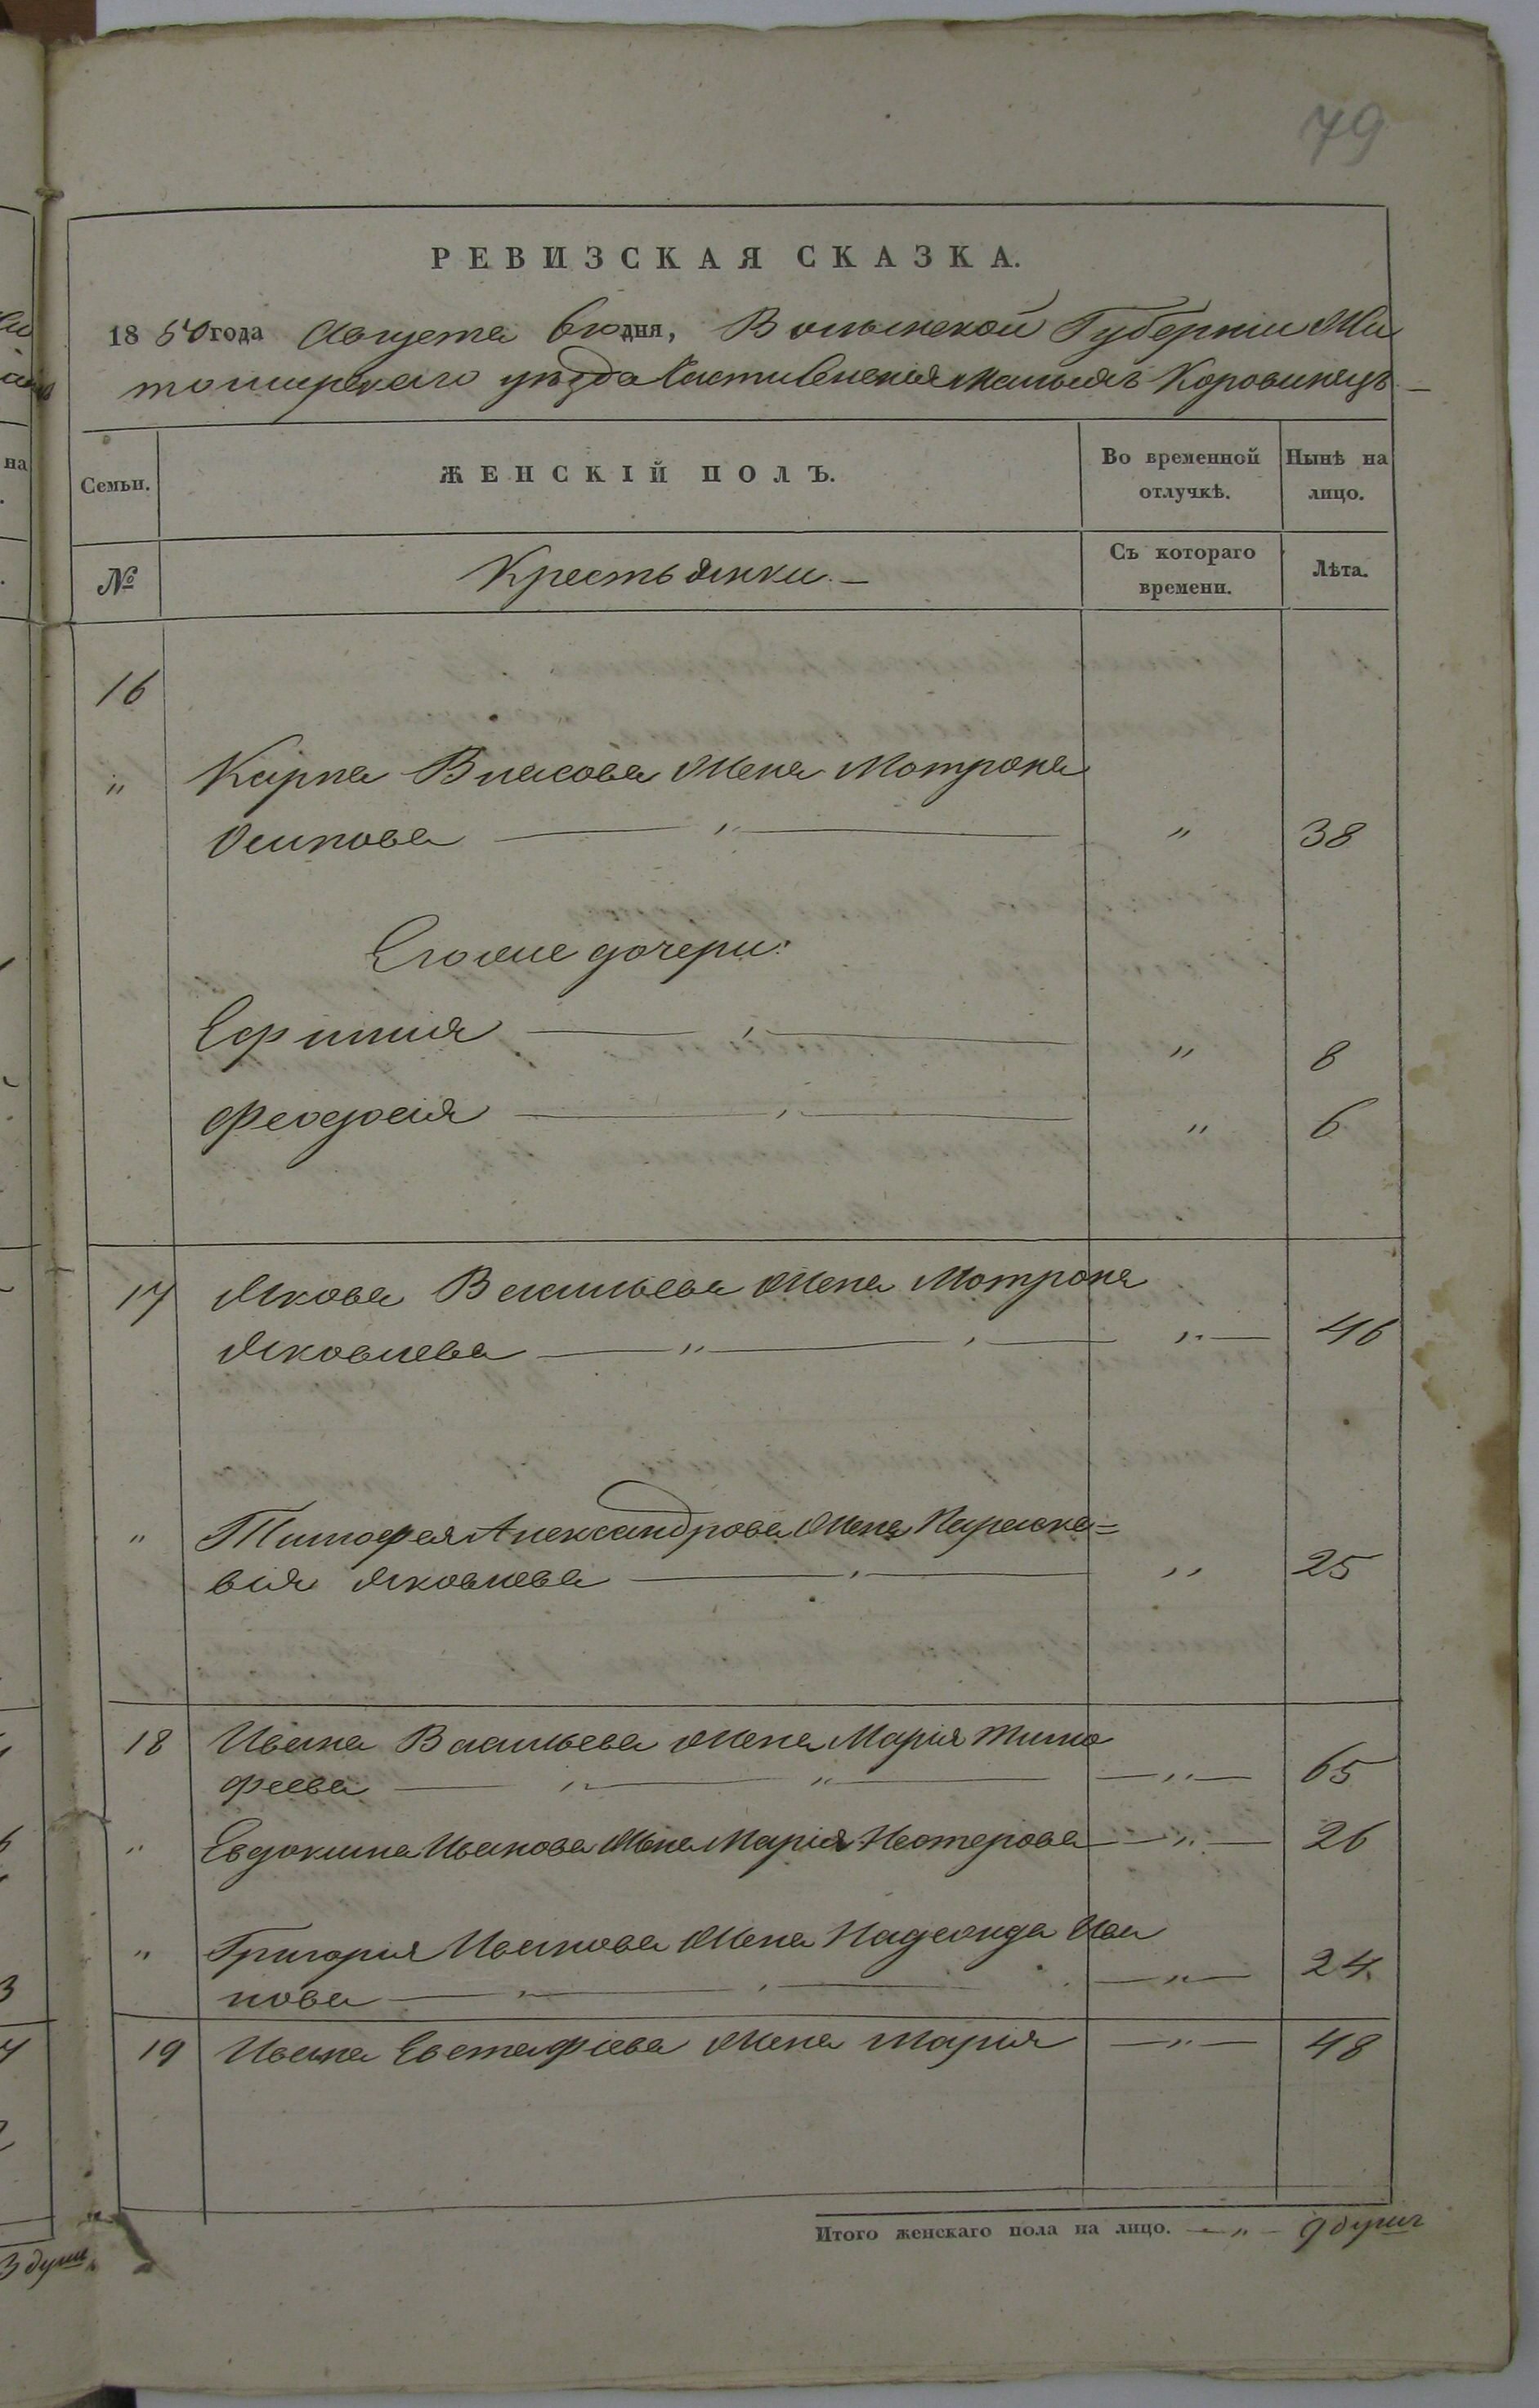 79
РЕВИЗСКАЯ СКАЗКА.
1850 года Августа 6 го дня, Волынской Губерніи Жи
томирскаго уѣзда Малыхъ Коровинецъ —
Семьи.
ЖЕНСКІЙ ПОЛЪ.
Во временной отлучкѣ.
Нынѣ на лицо.
№
Крестьянки. —
Съ котораго времени.
Лѣта.
16
" Карпа Власова жена Мотрона
Осипова — " — " 38
Его же дочери:
Ефимия — " — " 8
Феодосія — " — " 6
17 Якова Васильева жена Мотрона
Яковлева — " — " — " — 46
" Тимофея Александрова жена Параске=
вия Яковлева — " — " 25
18 Ивана Васильева жена Марія Тимо
феева — " — " — " — 65
" Евдокима Иванова жена Марія Нестерова — " — 26
" Григория Иванова жена Надежда Ива
нова — " — " — " — 24
19 Ивана Евстафіева жена Мария — " — 48
Итого женскаго пола на лицо. — " — 9 душъ
3 душ